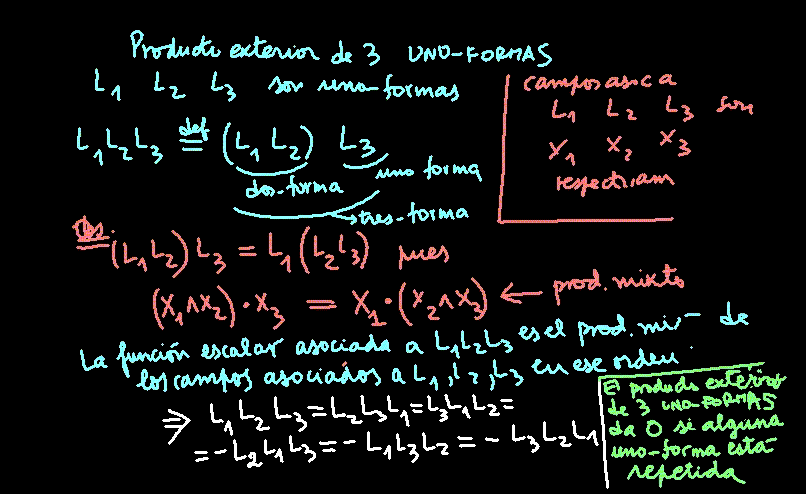 Producto exterior de 3 UNO-FORMAS
L₁ L₂ L₃ son uno-formas
L₁L₂L₃ def = (L₁ L₂) L₃
dos-forma
uno forma
tres-forma
campos asoca
L₁ L₂ L₃ son
X₁ X₂ X₃
respectivam
Obs.
(L₁L₂)L₃ = L₁(L₂L₃) pues
(X₁∧X₂)·X₃ = X₁·(X₂∧X₃) ← prod. mixto
La función escalar asociada a L₁L₂L₃ es el prod. mix— de
los campos asociados a L₁, L₂, L₃ en ese orden.
⇒ L₁L₂L₃ = L₂L₃L₁ = L₃L₁L₂ =
= - L₂L₁L₃ = - L₁L₃L₂ = - L₃L₂L₁
El producto exterior
de 3 UNO-FORMAS
da 0 si alguna
uno-forma está
repetida